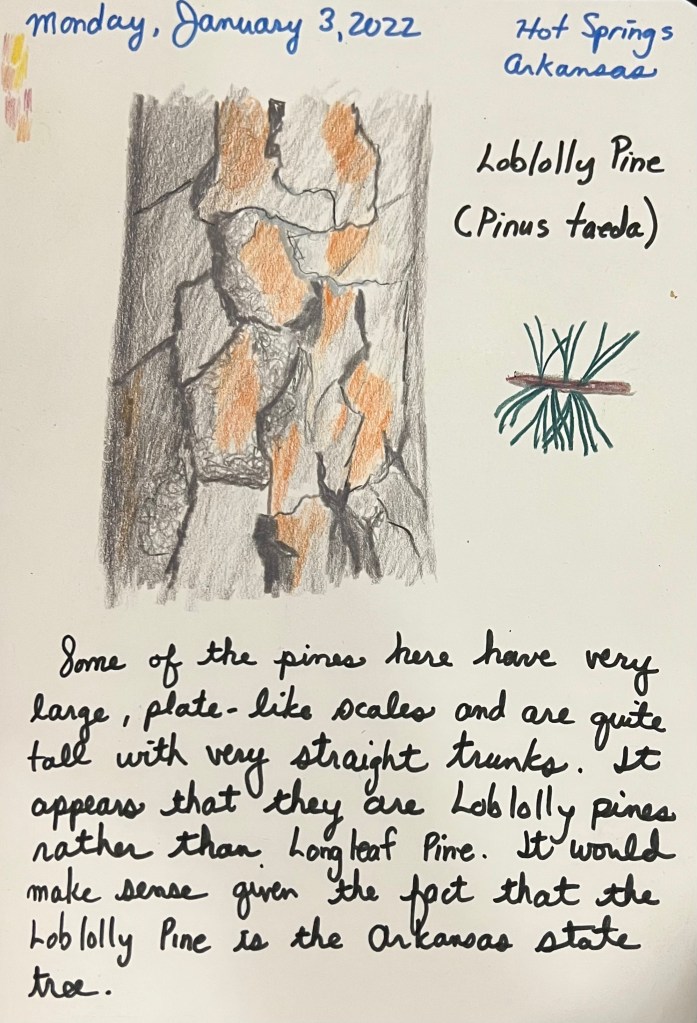 Monday, January 3, 2022
Hot Springs
Arkansas
Loblolly Pine
(Pinus taeda)
Some of the pines here have very
large, plate-like scales and are quite
tall with very straight trunks. It
appears that they are Loblolly pines
rather than Longleaf Pine. It would
make sense given the fact that the
Loblolly Pine is the Arkansas state
tree.